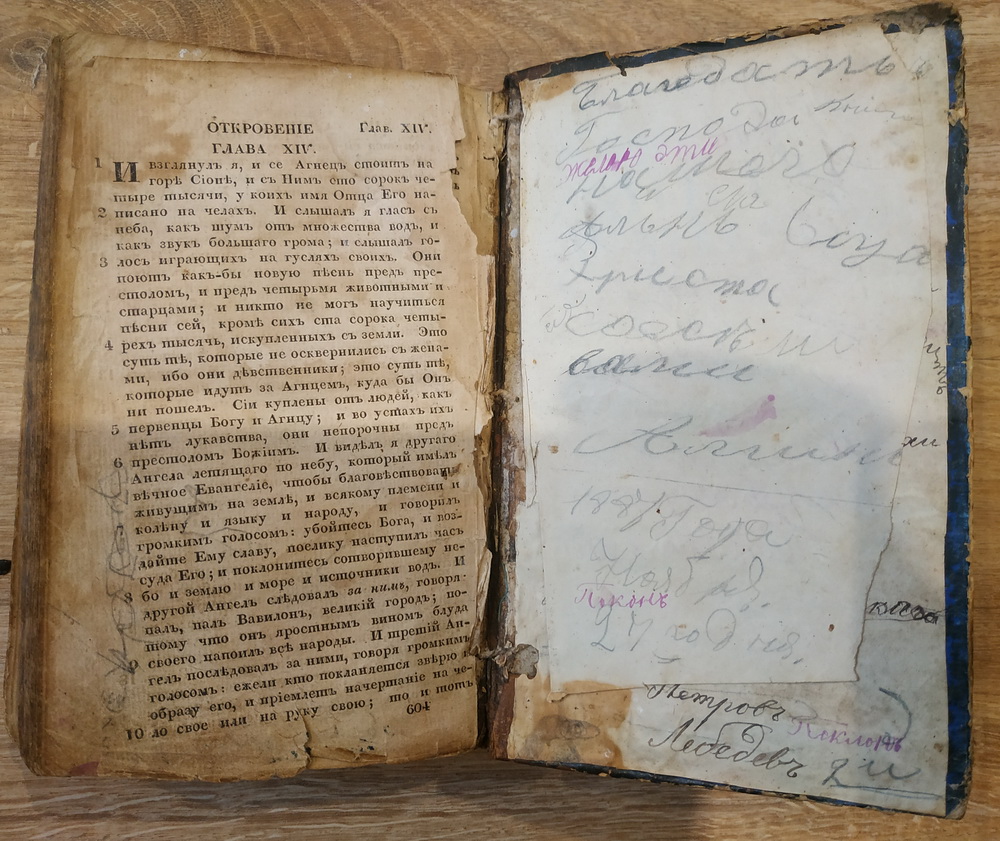 ОТКРОВЕНІЕ Глав. XIV.
ГЛАВА XIV.
1 И взглянулъ я, и се Агнецъ стоитъ на
горѣ Сіонѣ, и съ Нимъ сто сорокъ че-
тыре тысячи, у коихъ имя Отца Его на-
2 писано на челахъ. И слышалъ я гласъ съ
неба, какъ шумъ отъ множества водъ, и
какъ звукъ большаго грома; и слышалъ го-
3 лосъ играющихъ на гусляхъ своихъ. Они
поютъ какъ-бы новую пѣснь предъ пре-
столомъ, и предъ четырьмя животными и
старцами; и никто не могъ научиться
пѣсни сей, кромѣ сихъ ста сорока четы-
4 рехъ тысячъ, искупленныхъ съ земли. Это
суть тѣ, которые не осквернились съ жена-
ми, ибо они дѣвственники; это суть тѣ,
которые идутъ за Агнцемъ, куда бы Онъ
ни пошелъ. Сіи куплены отъ людей, какъ
5 первенцы Богу и Агнцу; и во устахъ ихъ
нѣтъ лукавства, они непорочны предъ
6 престоломъ Божіимъ. И видѣлъ я другаго
Ангела летящаго по небу, который имѣлъ
вѣчное Евангеліе, чтобы благовѣствовать
живущимъ на землѣ, и всякому племени и
колѣну и языку и народу, и говорилъ
громкимъ голосомъ: убойтесь Бога, и воз-
дайте Ему славу, поелику наступилъ часъ
суда Его; и поклонитесь сотворившему не-
8 бо и землю и море и источники водъ. И
другой Ангелъ слѣдовалъ за нимъ, говоря:
палъ, палъ Вавилонъ, великій городъ; по-
тому что онъ яростнымъ виномъ блуда
9 своего напоилъ всѣ народы. И третій Ан-
гелъ послѣдовалъ за ними, говоря громкимъ
голосомъ: ежели кто покланяется звѣрю и
образу его, и пріемлетъ начертаніе на че-
10 ло свое или на руку свою; то и тотъ
604
Благодать
Господа
желаю эти
нашего
Бога
Христа
вами
Аминь
1887 Года
Ноября.
Поклонъ
27 го дня.
Петровъ
Поклонъ
Лебедевъ